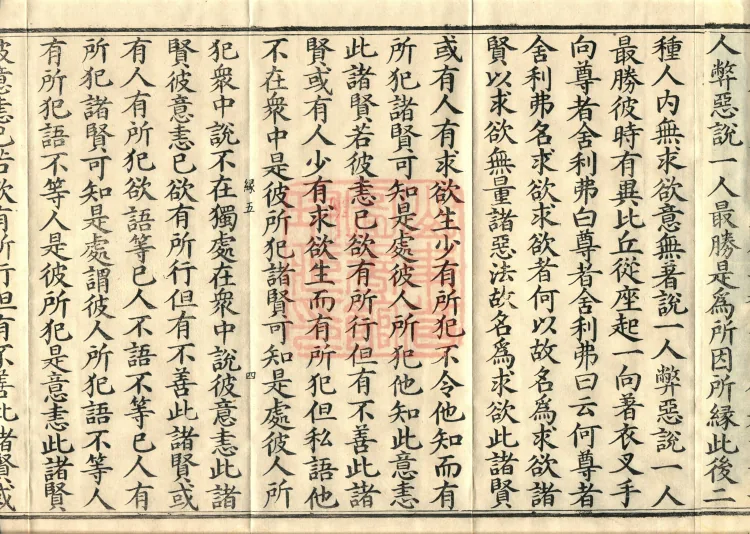 人弊惡說一人最勝是為所因所緣此後二
種人內無求欲意無著說一人弊惡說一人
最勝彼時有異比丘從座起一向著衣叉手
向尊者舍利弗白尊者舍利弗曰云何尊者
舍利弗名求欲求欲者何以故名為求欲諸
賢以求欲無量諸惡法故名為求欲此諸賢
或有人有求欲生少有所犯不令他知而有
所犯諸賢可知是處彼人所犯他知此意恚
此諸賢若彼恚已欲有所行但有不善此諸
賢或有人少有求欲生而有所犯但私語他
不在衆中是彼所犯諸賢可知是處彼人所
緣五
四
犯衆中說不在獨處在衆中說彼意恚此諸
賢彼意恚已欲有所行但有不善此諸賢或
有人有所犯欲語等已人不語不等已人有
所犯諸賢可知是處謂彼人所犯語不等人
有所犯語不等人是彼所犯是意恚此諸賢
彼意恚已若欲有所行但有不善此諸賢或